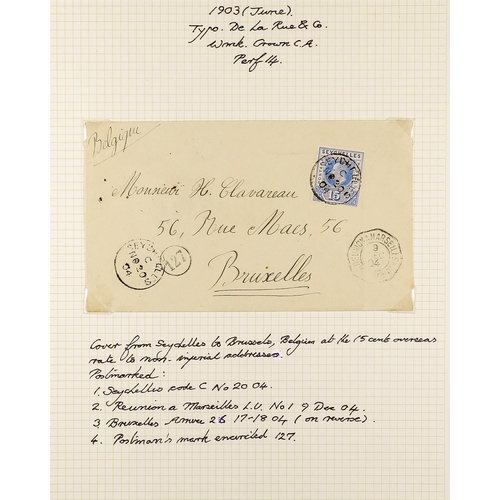 1903 (June).
Typo. De La Rue & Co.
Wmk. Crown C.A.
Perf 14.
Belgique
SEYCHELLES
SEYCHELLES
C
NO 20
04
15
Monsieur H. Clavareau
56, Rue Maes, 56
Bruxelles
SEYCHELLES
C
NO 20
04
127
9
DEC
04
Cover from Seychelles to Brussels, Belgium at the 15 cents overseas
rate to non-imperial addresses.
Postmarked:
1. Seychelles code C No 20 04.
2. Reunion a Marseilles L.V. No 1 9 Dec 04.
3. Bruxelles Arrivee 26 17-18 04 (on reverse).
4. Postman's mark encircled 127.